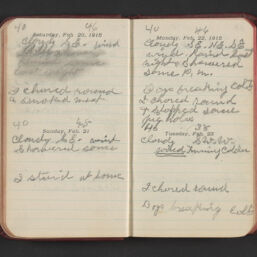 40 46
Saturday, Feb. 20, 1915
Cloudy S.E. wind
I chored round
& smoked meat
40 45
Sunday, Feb. 21
Cloudy S.E. wind
Showered some
I staid at home
40 46
Monday, Feb. 22, 1915
Cloudy S.E. N.E. S.E.
night & showered
some P.m.
Boys breaking colts
I chored round
& slopped some
46 38
Tuesday, Feb. 23
Cloudy S.W.W.
wind Turning Colder
I chored round
Boys breaking colts